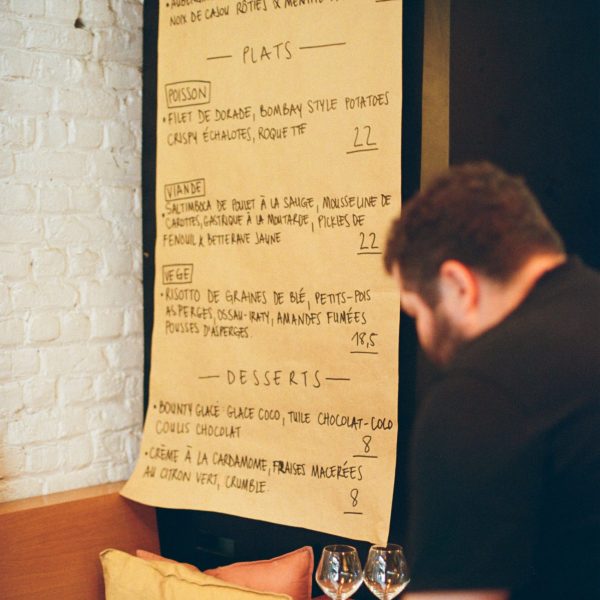 NOIX DE CAJOU RÔTIES & MENTHE
PLATS
POISSON
• FILET DE DORADE, BOMBAY STYLE POTATOES
CRISPY ÉCHALOTES, ROQUETTE
22
VIANDE
• SALTIMBOCA DE POULET À LA SAUGE, MOUSSELINE DE
CAROTTES, GASTRIQUE À LA MOUTARDE, PICKLES DE
FENOUIL & BETTERAVE JAUNE
22
VEGE
• RISOTTO DE GRAINES DE BLÉ, PETITS-POIS
ASPERGES, OSSAU-IRATY, AMANDES FUMÉES
POUSSES D'ASPERGES.
18,5
DESSERTS
• BOUNTY GLACÉ: GLACE COCO, TUILE CHOCOLAT-COCO
COULIS CHOCOLAT
8
• CRÈME À LA CARDAMOME, FRAISES MACERÉES
AU CITRON VERT, CRUMBLE.
8